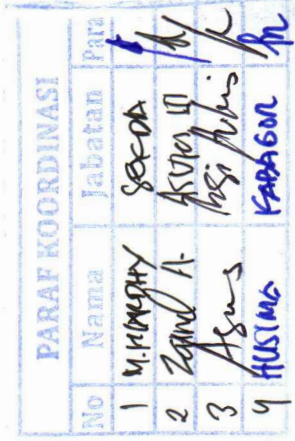 PARAF KOORDINASI
No Nama Jabatan Para
1 SEKDA
2 Zainal A. ASISTEN III
3 Agus
4 HUSIMA KABAGOR